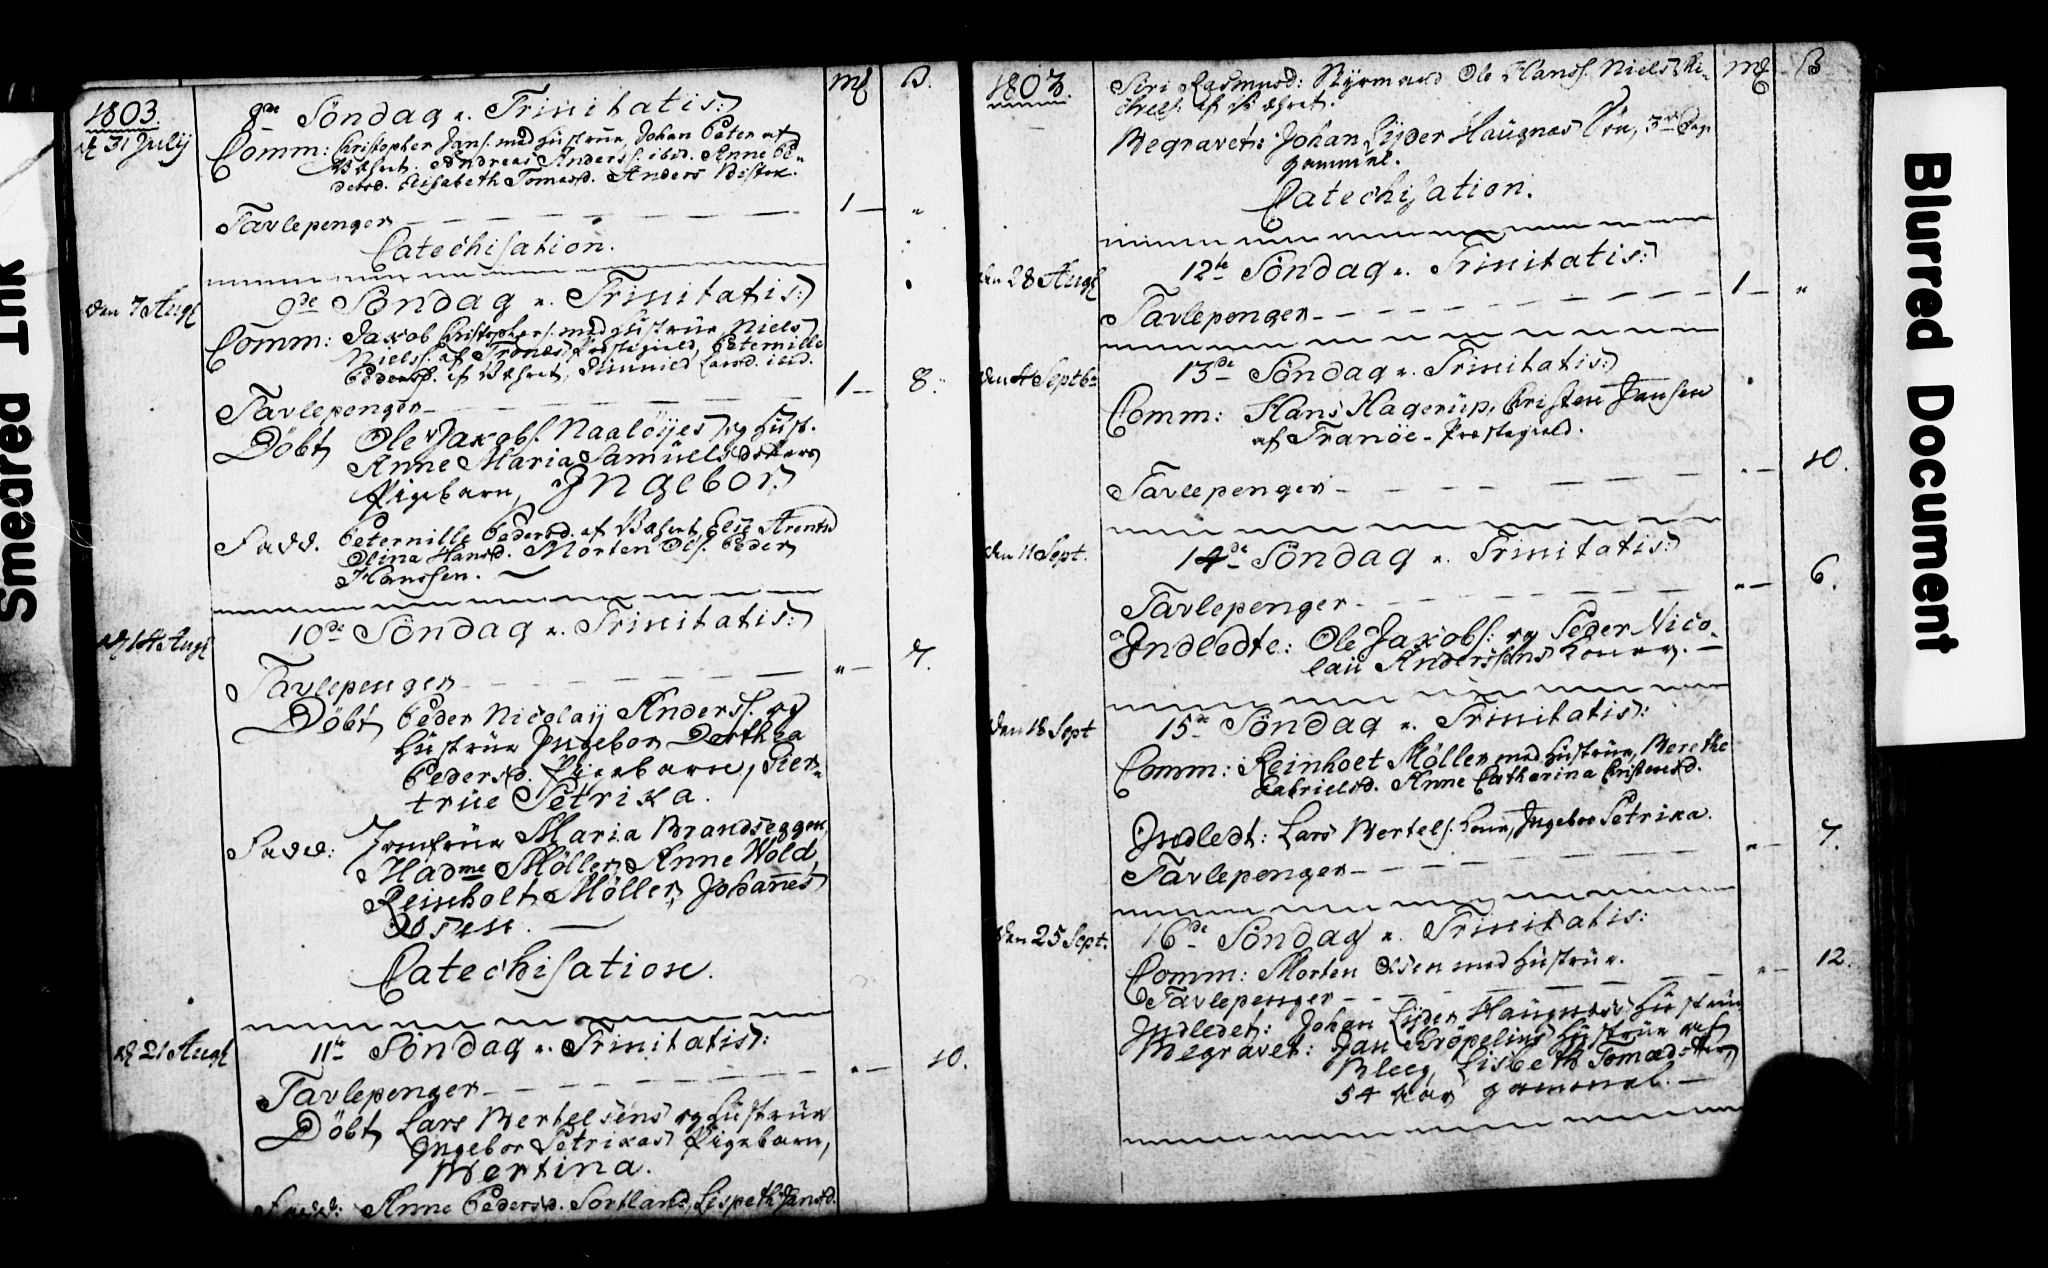 Smeared Ink
1803.
mf ß.
d 31 July
8de Söndag e. Trinitatis:
Comm: Christopher Jans. med Hustrüe, Johan Peter af
Andreas Anders. ibid. Anne Pe-
dersd. Elisabeth Tomasd. Anders
Tavlepenger — 1 — "
Catechisation.
den 7 Augt
9de Söndag e. Trinitatis:
Comm: Jakob Christophers. med Hustrüe, Niels
Niels. af Tranöes Præstegield, Peternille
Pedersd. af Larsd. ibid.
Tavlepenger — 1 — 8.
Döbt Ole Jakobs. Naalöyes og Hust.
Anne Maria Samuelsdatters
Pigebarn, Ingebor.
Fadd. Peternille Pedersd. af Else Arentsd
Olina Hansd. Morten Ols. Peder
Hanssen.
d 14 Augt
10de Söndag e. Trinitatis:
Tavlepenger — " — 7.
Döbt Peder Nicolaij Anders. og
Hustrüe Ingebor Dorthea
Pedersd. Pigebarn, Gier-
trüe Petrika.
Fadd: Jomfrüe Maria Brandseggen,
Madme Möller, Anne Wold,
Reinholt Möller, Johannes
Olsen.
Catechisation.
d 21 Augt
11te Söndag e. Trinitatis:
Tavlepenger — " — 10.
Döbt Lars Bertelsens og Hustrüe
Ingebor Petrikas Pigebarn,
Bertina.
Fadd: Anne Pedersd. Sortland, Lisbeth Jansd.
1803.
mf ß
Siri Rasmusd: Styrmand Ole Hans. Niels Mi-
chels. af
Begravet: Johan Lyder Haugnæs Sön, 3 Dage
gammel.
Catechisation.
den 28 Augt
12te Söndag e. Trinitatis:
Tavlepenger — 1 — "
den 4 Septbr
13de Söndag e. Trinitatis:
Comm: Hans Hagerüp, Christen Jansen
af Tranöe Præstegield.
Tavlepenger — " — 10.
den 11 Sept.
14de Söndag e. Trinitatis:
Tavlepenger — " — 6.
Indledte: Ole Jakobs: og Peder Nico-
laii Anderssens Koner.
den 18 Sept
15de Söndag e. Trinitatis:
Comm: Reinholt Möller med Hustrüe, Berethe
Gabrielsd. Anne Catharina Christensd.
Indledt: Lars Bertels. Kone, Ingebor Petrika.
Tavlepenger — " — 7.
den 25 Sept.
16de Söndag e. Trinitatis:
Comm: Morten Olsen med Hustrüe.
Tavlepenger — " — 12.
Indledet: Johan Lyder Haugnæs Hustrüe
Begravet: Jan Kröpelins Hustrüe af
Bleeg, Lisbeth Tomædatter,
54 Aar gammel.
Blurred Document